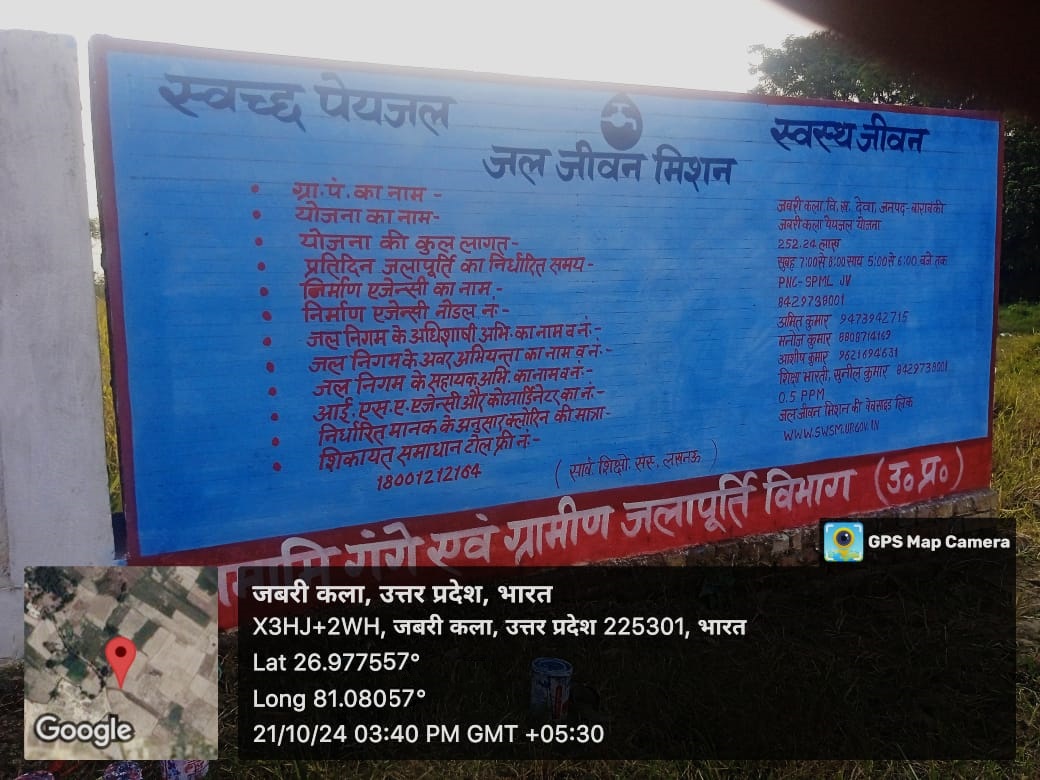 स्वच्छ पेयजल
जल जीवन मिशन
स्वस्थ जीवन
• ग्रा.पं. का नाम -
• योजना का नाम-
• योजना की कुल लागत-
• प्रतिदिन जलापूर्ति का निर्धारित समय-
• निर्माण एजेन्सी का नाम-
• निर्माण एजेन्सी नोडल नं:-
• जल निगम के अधिशाषी अभि. का नाम व नं:-
• जल निगम के अवर अभियन्ता का नाम व नं:-
• जल निगम के सहायक अभि. का नाम व नं:-
• आई. एस. ए. एजेन्सी और कोआर्डिनेटर का नं:-
• निर्धारित मानक के अनुसार क्लोरिन की मात्रा-
• शिकायत समाधान टोल फ्री नं:-
18001212164
जबरी कला, वि.ख. देवा, जनपद- बाराबंकी
जबरी कला पेयजल योजना
252.24 लाख
सुबह 7:00 से 8:00 सायं 5:00 से 6:00 बजे तक
PNC-SPML JV
8429738001
अमित कुमार 9473942715
मनोज कुमार 8808714169
आशीष कुमार 9621694631
शिक्षा भारती, सुनील कुमार 8429738001
0.5 PPM
जल जीवन मिशन की वेबसाइड लिंक
WWW.SWSM.UP.GOV.IN
(सार्व. शिक्षो. संस. लखनऊ)
नमामि गंगे एवं ग्रामीण जलापूर्ति विभाग (उ॰ प्र॰)
GPS Map Camera
जबरी कला, उत्तर प्रदेश, भारत
X3HJ+2WH, जबरी कला, उत्तर प्रदेश 225301, भारत
Lat 26.977557°
Long 81.08057°
21/10/24 03:40 PM GMT +05:30
Google